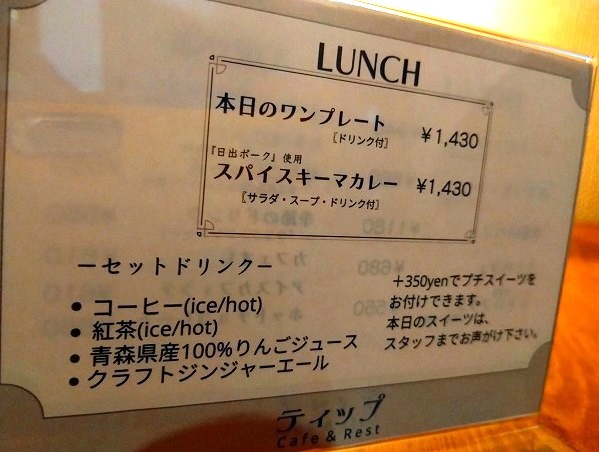 LUNCH
本日のワンプレート ¥1,430
〔ドリンク付〕
『日出ポーク』使用
スパイスキーマカレー ¥1,430
〔サラダ・スープ・ドリンク付〕
ーセットドリンクー
● コーヒー(ice/hot)
● 紅茶(ice/hot)
● 青森県産100%りんごジュース
● クラフトジンジャーエール
＋350yenでプチスイーツを
お付けできます。
本日のスイーツは、
スタッフまでお声がけ下さい。
ティップ
Cafe & Rest